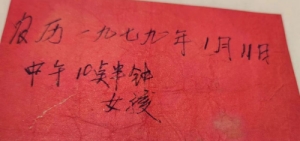 农历一九七九年1月11日
中午10点半钟
女孩